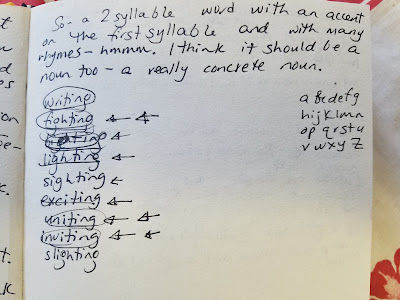 So - a 2 syllable word with an accent
on the first syllable and with many
rhymes - hmmm. I think it should be a
noun too - a really concrete noun.
writing
fighting
lighting
sighting
exciting
uniting
inviting
slighting
a bcdefg
hijklmn
op qrstu
v wxy z